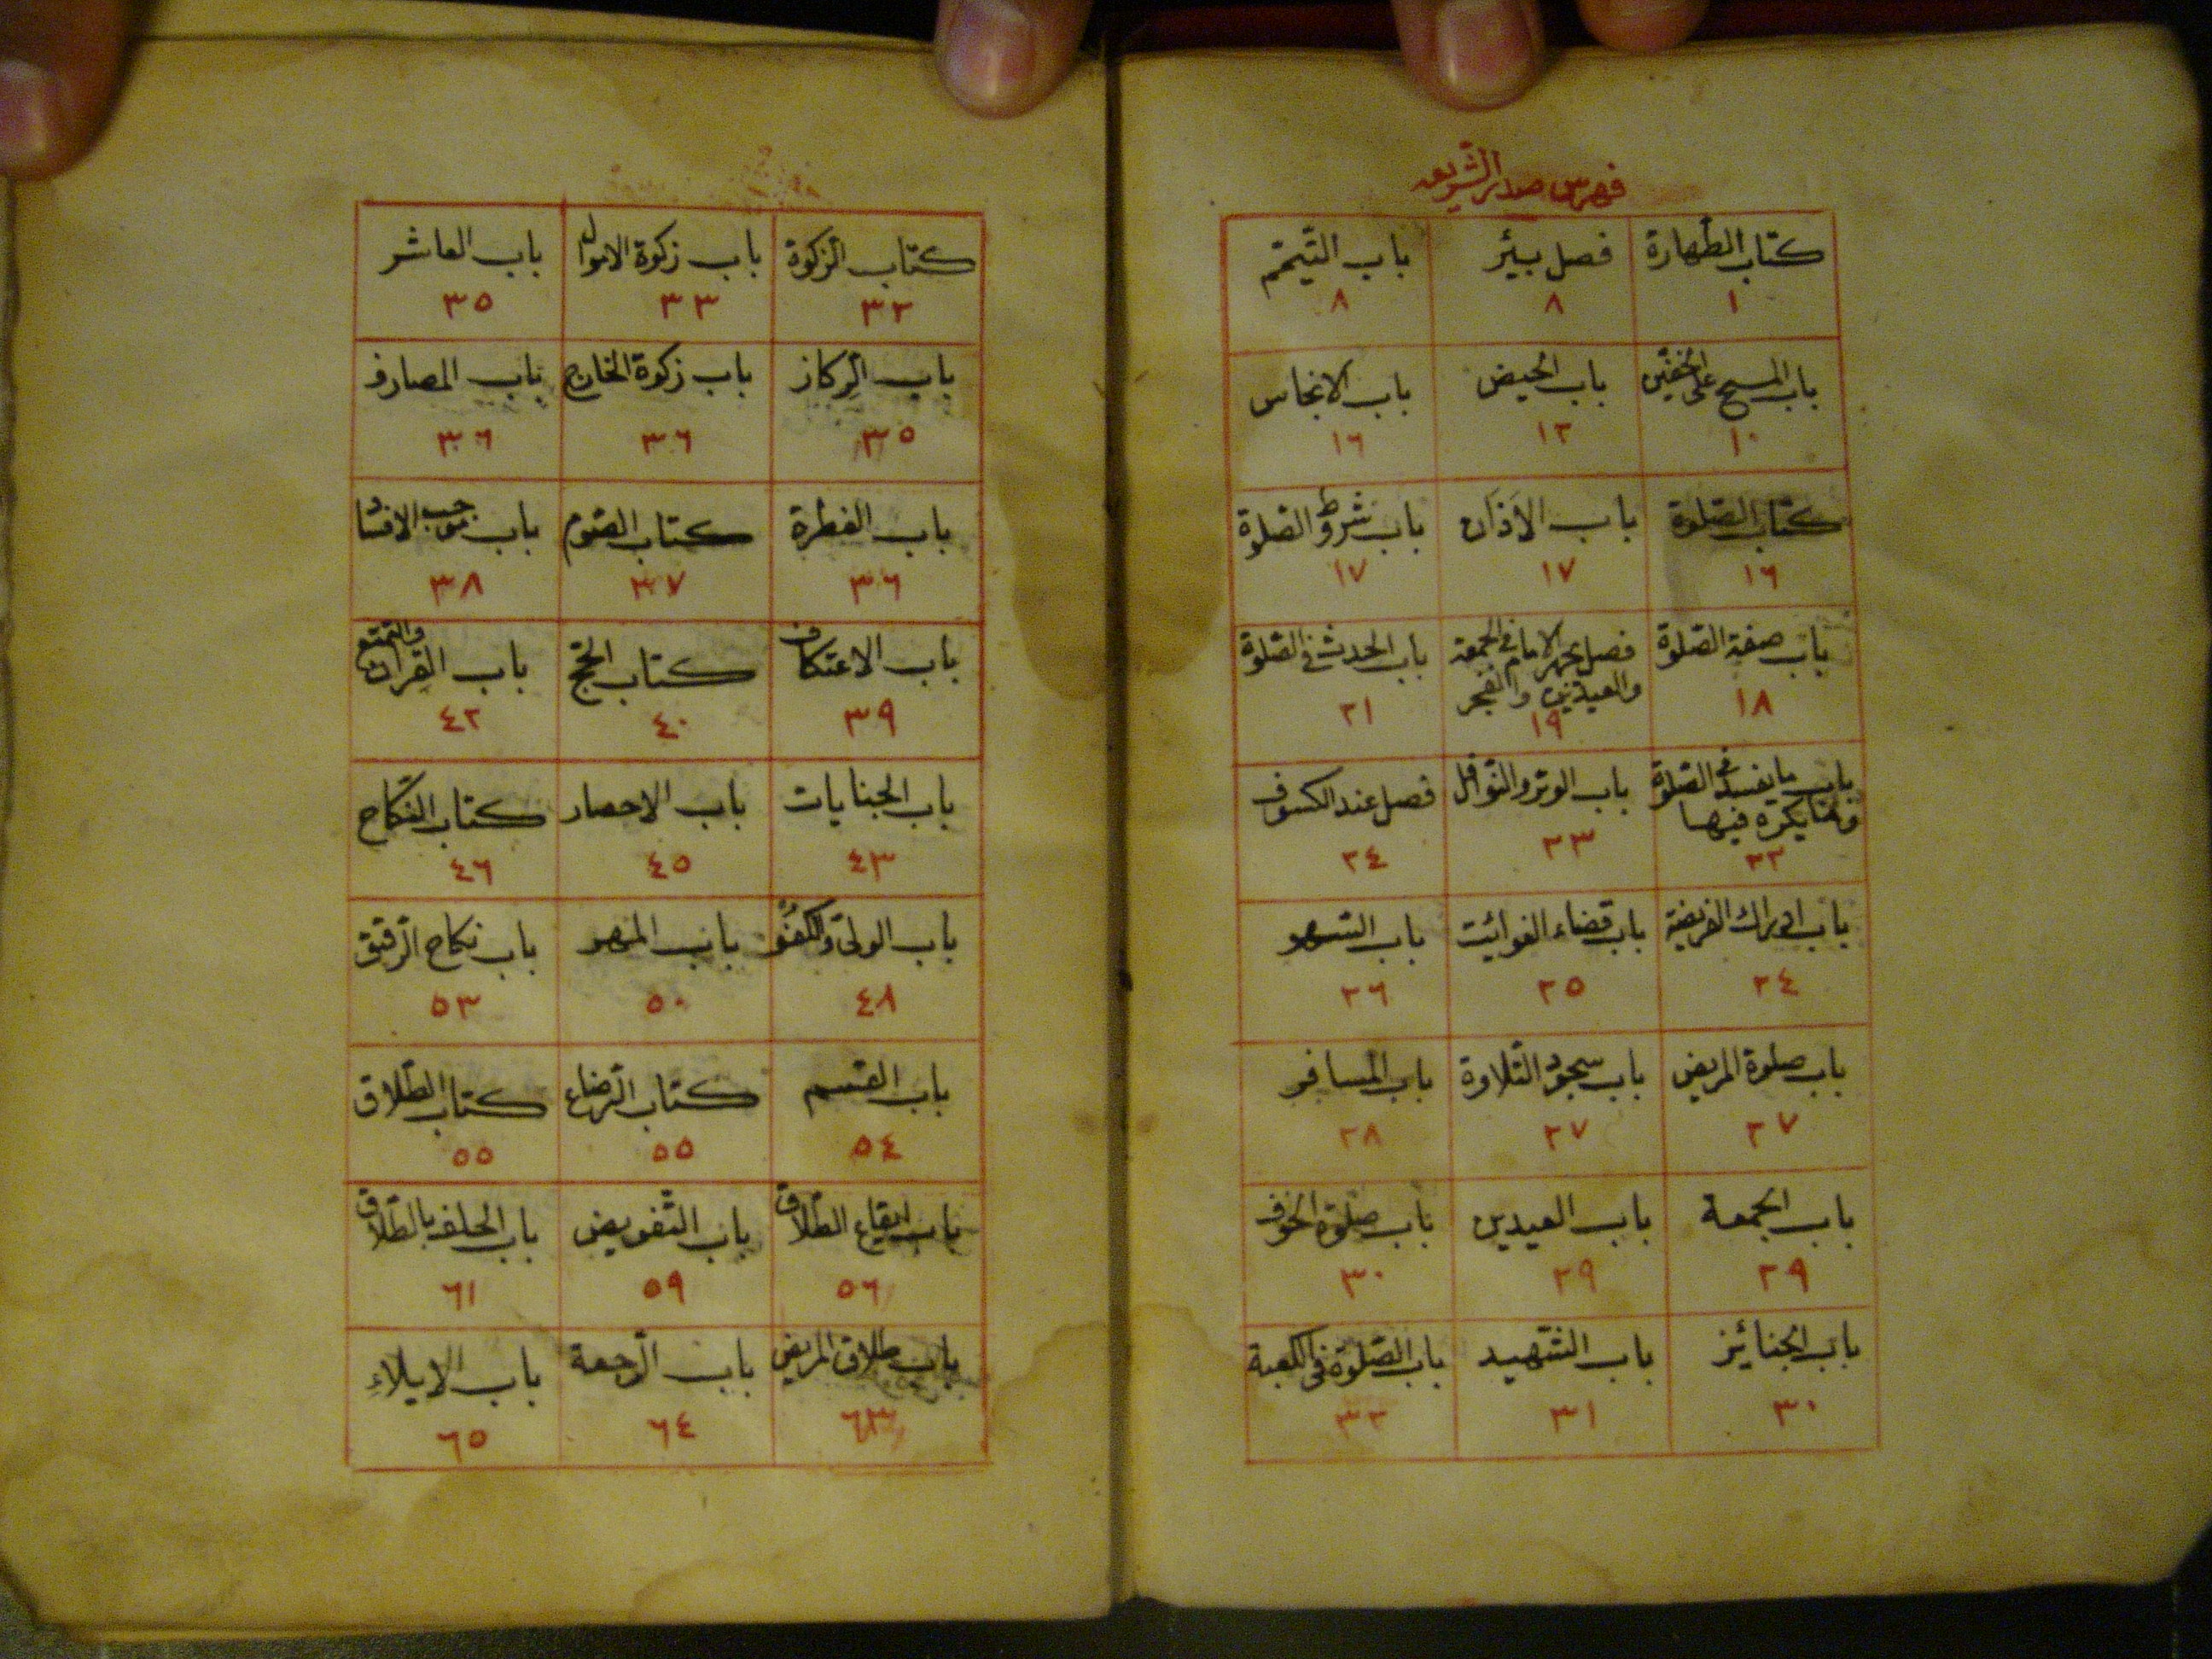 فهرس صدر الشريعه
كتاب الطهارة
١
فصل بيئر
٨
باب التيمّم
٨
باب المسح على الخفّين
١٠
باب الحيض
١٢
باب الانجاس
١٦
كتاب الصّلوة
١٦
باب الاذان
١٧
باب شروط الصّلوة
١٧
باب صفة الصّلوة
١٨
فصل يجهر الامام فى الجمعة
والعيدين والفجر
١٩
باب الحدث فى الصّلوة
٢١
باب ما يفسد الصّلوة
وما يكره فيها
٢٢
باب الوتر والنّوافل
٢٣
فصل عند الكسوف
٢٤
باب ادراك الفريضة
٢٤
باب قضاء الفوائيت
٢٥
باب السّهو
٢٦
باب صلوة المريض
٢٧
باب سجود التّلاوة
٢٧
باب المسافر
٢٨
باب الجمعة
٢٩
باب العيدين
٢٩
باب صلوة الخوف
٣٠
باب الجنائيز
٣٠
باب الشّهيد
٣١
باب الصّلوة فى الكعبة
٣٢
كتاب الزّكوة
٣٢
باب زكوة الاموال
٣٣
باب العاشر
٣٥
باب الرّكاز
٣٥
باب زكوة الخارج
٣٦
باب المصارف
٣٦
باب الفطرة
٣٦
كتاب الصّوم
٣٧
باب موجب الافساد
٣٨
باب الاعتكاف
٣٩
كتاب الحجّ
٤٠
باب القران والتمتع
٤٢
باب الجنايات
٤٣
باب الاحصار
٤٥
كتاب النّكاح
٤٦
باب الولىّ والكفؤ
٤٨
باب المهر
٥٠
باب نكاح الرّقيق
٥٣
باب القسم
٥٤
كتاب الرّضاع
٥٥
كتاب الطّلاق
٥٥
باب ايقاع الطّلاق
٥٦
باب التّفويض
٥٩
باب الحلف بالطّلاق
٦١
باب طلاق المريض
٦٣
باب الرّجعة
٦٤
باب الايلاءِ
٦٥